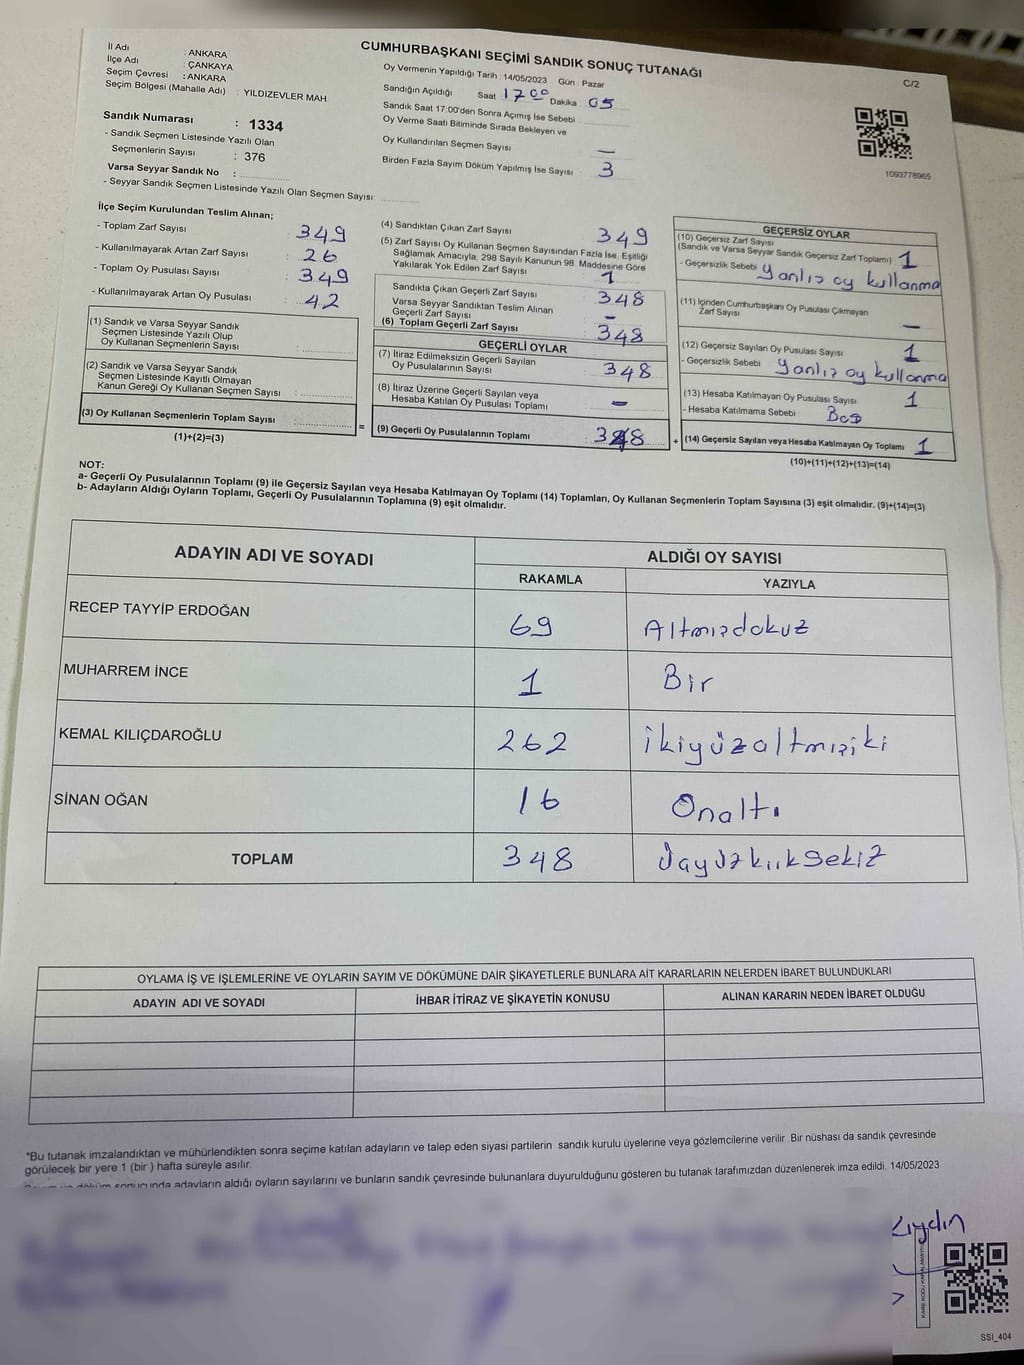 CUMHURBAŞKANI SEÇİMİ SANDIK SONUÇ TUTANAĞI
C/2
İl Adı : ANKARA
İlçe Adı : ÇANKAYA
Seçim Çevresi : ANKARA
Seçim Bölgesi (Mahalle Adı) : YILDIZEVLER MAH
Sandık Numarası : 1334
- Sandık Seçmen Listesinde Yazılı Olan
Seçmenlerin Sayısı : 376
Varsa Seyyar Sandık No :
- Seyyar Sandık Seçmen Listesinde Yazılı Olan Seçmen Sayısı:
Oy Vermenin Yapıldığı Tarih : 14/05/2023 Gün : Pazar
Sandığın Açıldığı Saat 17 00 Dakika 05
Sandık Saat 17:00'den Sonra Açımış İse Sebebi
Oy Verme Saati Bitiminde Sırada Bekleyen ve
Oy Kullandırılan Seçmen Sayısı : –
Birden Fazla Sayım Döküm Yapılmış İse Sayısı : 3
1093778965
İlçe Seçim Kurulundan Teslim Alınan;
- Toplam Zarf Sayısı : 349
- Kullanılmayarak Artan Zarf Sayısı : 26
- Toplam Oy Pusulası Sayısı : 349
- Kullanılmayarak Artan Oy Pusulası : 42
(1) Sandık ve Varsa Seyyar Sandık
Seçmen Listesinde Yazılı Olup
Oy Kullanan Seçmenlerin Sayısı :
(2) Sandık ve Varsa Seyyar Sandık
Seçmen Listesinde Kayıtlı Olmayan
Kanun Gereği Oy Kullanan Seçmen Sayısı :
(3) Oy Kullanan Seçmenlerin Toplam Sayısı :
(1)+(2)=(3)
=
(4) Sandıktan Çıkan Zarf Sayısı : 349
(5) Zarf Sayısı Oy Kullanan Seçmen Sayısından Fazla İse, Eşitliği
Sağlamak Amacıyla, 298 Sayılı Kanunun 98. Maddesine Göre
Yakılarak Yok Edilen Zarf Sayısı : 1
Sandıkta Çıkan Geçerli Zarf Sayısı : 348
Varsa Seyyar Sandıktan Teslim Alınan
Geçerli Zarf Sayısı : –
(6) Toplam Geçerli Zarf Sayısı : 348
GEÇERLİ OYLAR
(7) İtiraz Edilmeksizin Geçerli Sayılan
Oy Pusulalarının Sayısı : 348
(8) İtiraz Üzerine Geçerli Sayılan veya
Hesaba Katılan Oy Pusulası Toplamı : –
(9) Geçerli Oy Pusulalarının Toplamı : 348
+
GEÇERSİZ OYLAR
(10) Geçersiz Zarf Sayısı
(Sandık ve Varsa Seyyar Sandık Geçersiz Zarf Toplamı) 1
- Geçersizlik Sebebi Yanlış oy kullanma
(11) İçinden Cumhurbaşkanı Oy Pusulası Çıkmayan
Zarf Sayısı –
(12) Geçersiz Sayılan Oy Pusulası Sayısı 1
- Geçersizlik Sebebi Yanlış oy kullanma
(13) Hesaba Katılmayan Oy Pusulası Sayısı 1
- Hesaba Katılmama Sebebi : Boş
(14) Geçersiz Sayılan veya Hesaba Katılmayan Oy Toplamı 1
(10)+(11)+(12)+(13)=(14)
NOT:
a- Geçerli Oy Pusulalarının Toplamı (9) ile Geçersiz Sayılan veya Hesaba Katılmayan Oy Toplamı (14) Toplamları, Oy Kullanan Seçmenlerin Toplam Sayısına (3) eşit olmalıdır. (9)+(14)=(3)
b- Adayların Aldığı Oyların Toplamı, Geçerli Oy Pusulalarının Toplamına (9) eşit olmalıdır.
ADAYIN ADI VE SOYADI ALDIĞI OY SAYISI
RAKAMLA YAZIYLA
RECEP TAYYİP ERDOĞAN 69 Altmışdokuz
MUHARREM İNCE 1 Bir
KEMAL KILIÇDAROĞLU 262 ikiyüzaltmışiki
SİNAN OĞAN 16 Onaltı
TOPLAM 348 üçyüzkırksekiz
OYLAMA İŞ VE İŞLEMLERİNE VE OYLARIN SAYIM VE DÖKÜMÜNE DAİR ŞİKAYETLERLE BUNLARA AİT KARARLARIN NELERDEN İBARET BULUNDUKLARI
ADAYIN ADI VE SOYADI İHBAR İTİRAZ VE ŞİKAYETİN KONUSU ALINAN KARARIN NEDEN İBARET OLDUĞU
*Bu tutanak imzalandıktan ve mühürlendikten sonra seçime katılan adayların ve talep eden siyasi partilerin sandık kurulu üyelerine veya gözlemcilerine verilir. Bir nüshası da sandık çevresinde
görülecek bir yere 1 (bir) hafta süreyle asılır.
döküm sonucunda adayların aldığı oyların sayılarını ve bunların sandık çevresinde bulunanlara duyurulduğunu gösteren bu tutanak tarafımızdan düzenlenerek imza edildi. 14/05/2023
SSI_404